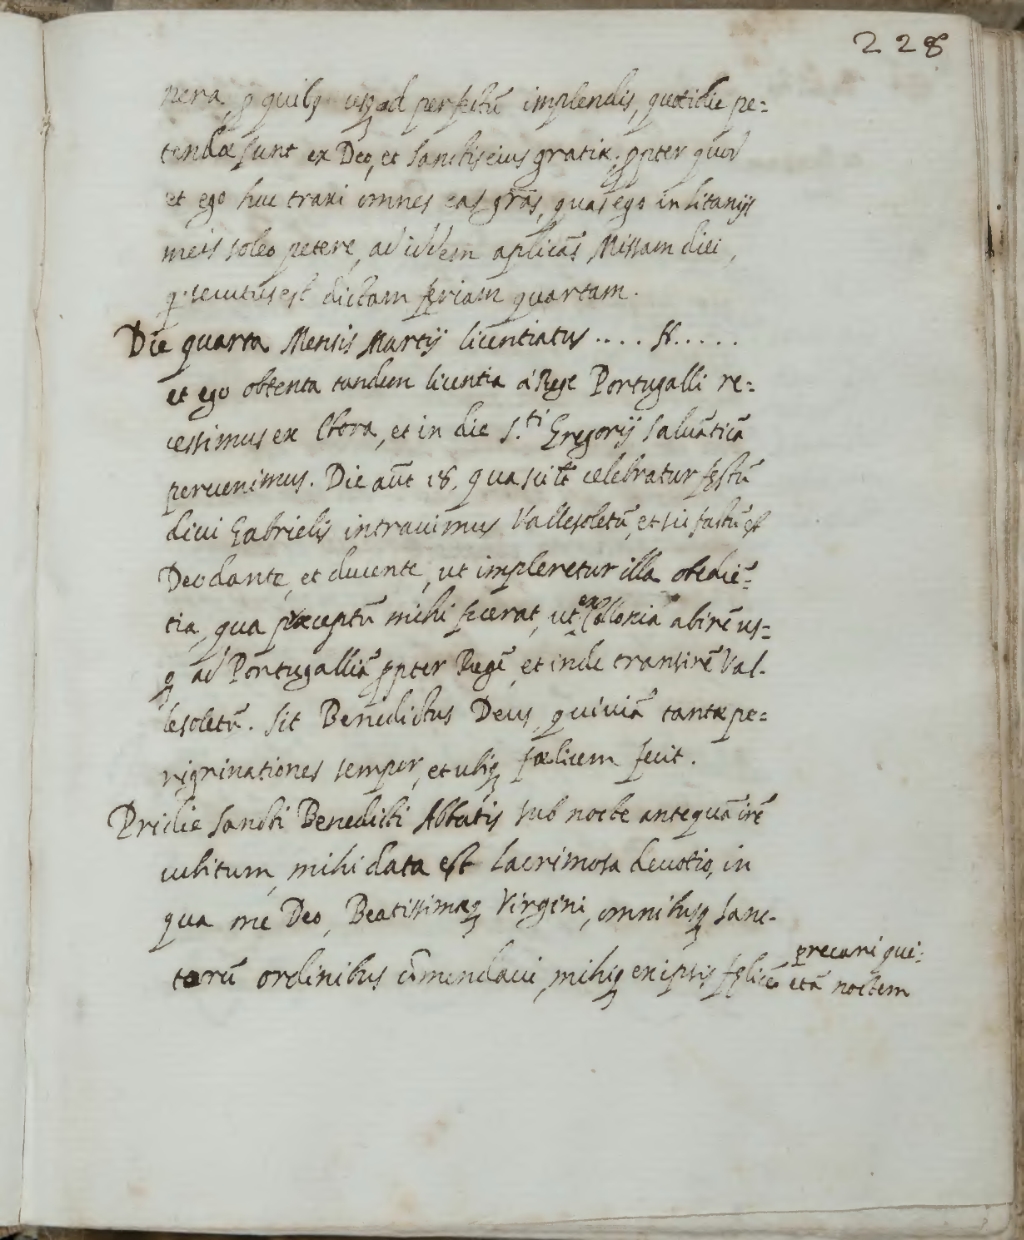 228
nera, ꝑ quibꝫ usqꝫ ad perfectū implendis, quotidie pe=
tendæ sunt ex Deo, et sanctis eius gratiæ. ꝓpter quod
et ego huc traxi omnes eas grãs, quas ego in litanijs
meis soleo petere, ad iddem aplicãs Missam diei,
q' secutus est dictam feriam quartam.
Die quarta Mensis Martij licentiatus .... H.....
et ego obtenta tandem licentia á Rege Portugalli re=
cessimus ex Ebora, et in die S.ti Gregorij Salmãticã
peruenimus. Die aũt 18, qua scilt celebratur festū
diui Gabrielis intrauimus Vallesoletū, et sic factū est
Deo dante, et ducente, ut impleretur illa obediẽ=
tia, qua præceptū mihi fuerat, ut ex Collonia abirẽ us=
qꝫ ad Portugalliã ꝓpter Regẽ, et inde transirẽ Val-
lesoletū. Sit Benedictus Deus, qui viã tantæ pe=
rigrinationes semper, et ubiqꝫ fælicem fecit.
Pridie Sancti Benedicti Abbatis sub nocte antequã irẽ
cubitum, mihi data est lacrimosa deuotio, in
qua me Deo, Beatissimæqꝫ Virgini, omnibusqꝫ Sanc-
torū ordinibus cõmendaui, mihiqꝫ ex ipsis felicẽ
precari qui=
etã noctem